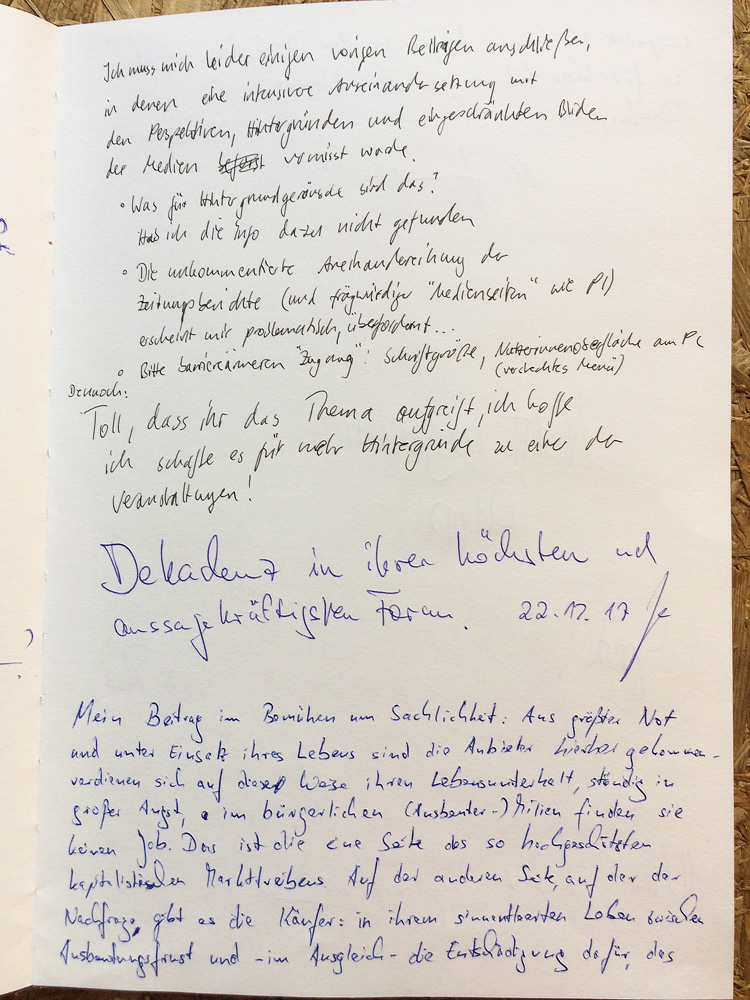 Ich muss mich leider einigen vorigen Beiträgen anschließen,
in denen eine intensivere Auseinandersetzung mit
den Perspektiven, Hintergründen und eingeschränkten Bildern
der Medien vermisst wurde.
° Was für Hintergrundgeräusche sind das?
Hab ich die Info dazu nicht gefunden
° Die unkommentierte Aneinanderreihung der
Zeitungsberichte (und fragwürdiger "Medienseiten" wie PI)
erscheint mir problematisch, überfordernt...
° Bitte barriereärmeren "Zugang": Schriftgröße, Nutzerinnenoberfläche am PC
(verstecktes Menü)
Dennoch:
Toll, dass ihr das Thema aufgreift, ich hoffe
ich schaffe es für mehr Hintergründe zu einer der
Veranstaltungen!
Dekadenz in ihrer höchsten und
aussagekräftigsten Form. 22.12.17
Mein Beitrag im Bemühen um Sachlichkeit: Aus größter Not
und unter Einsatz ihres Lebens sind die Anbieter hierher gekommen -
verdienen sich auf diese Weise ihren Lebensunterhalt, ständig in
großer Angst, im bürgerlichen (Ausbeuter-) Milieu finden sie
keinen Job. Das ist die eine Seite des so hochgeschätzten
kapitalistischen Markttreibens. Auf der anderen Seite, auf der der
Nachfrage, gibt es die Käufer: in ihrem sinnentleerten Leben zwischen
Ausbeutungsfrust und - im Ausgleich - die Entschädigung dafür, das